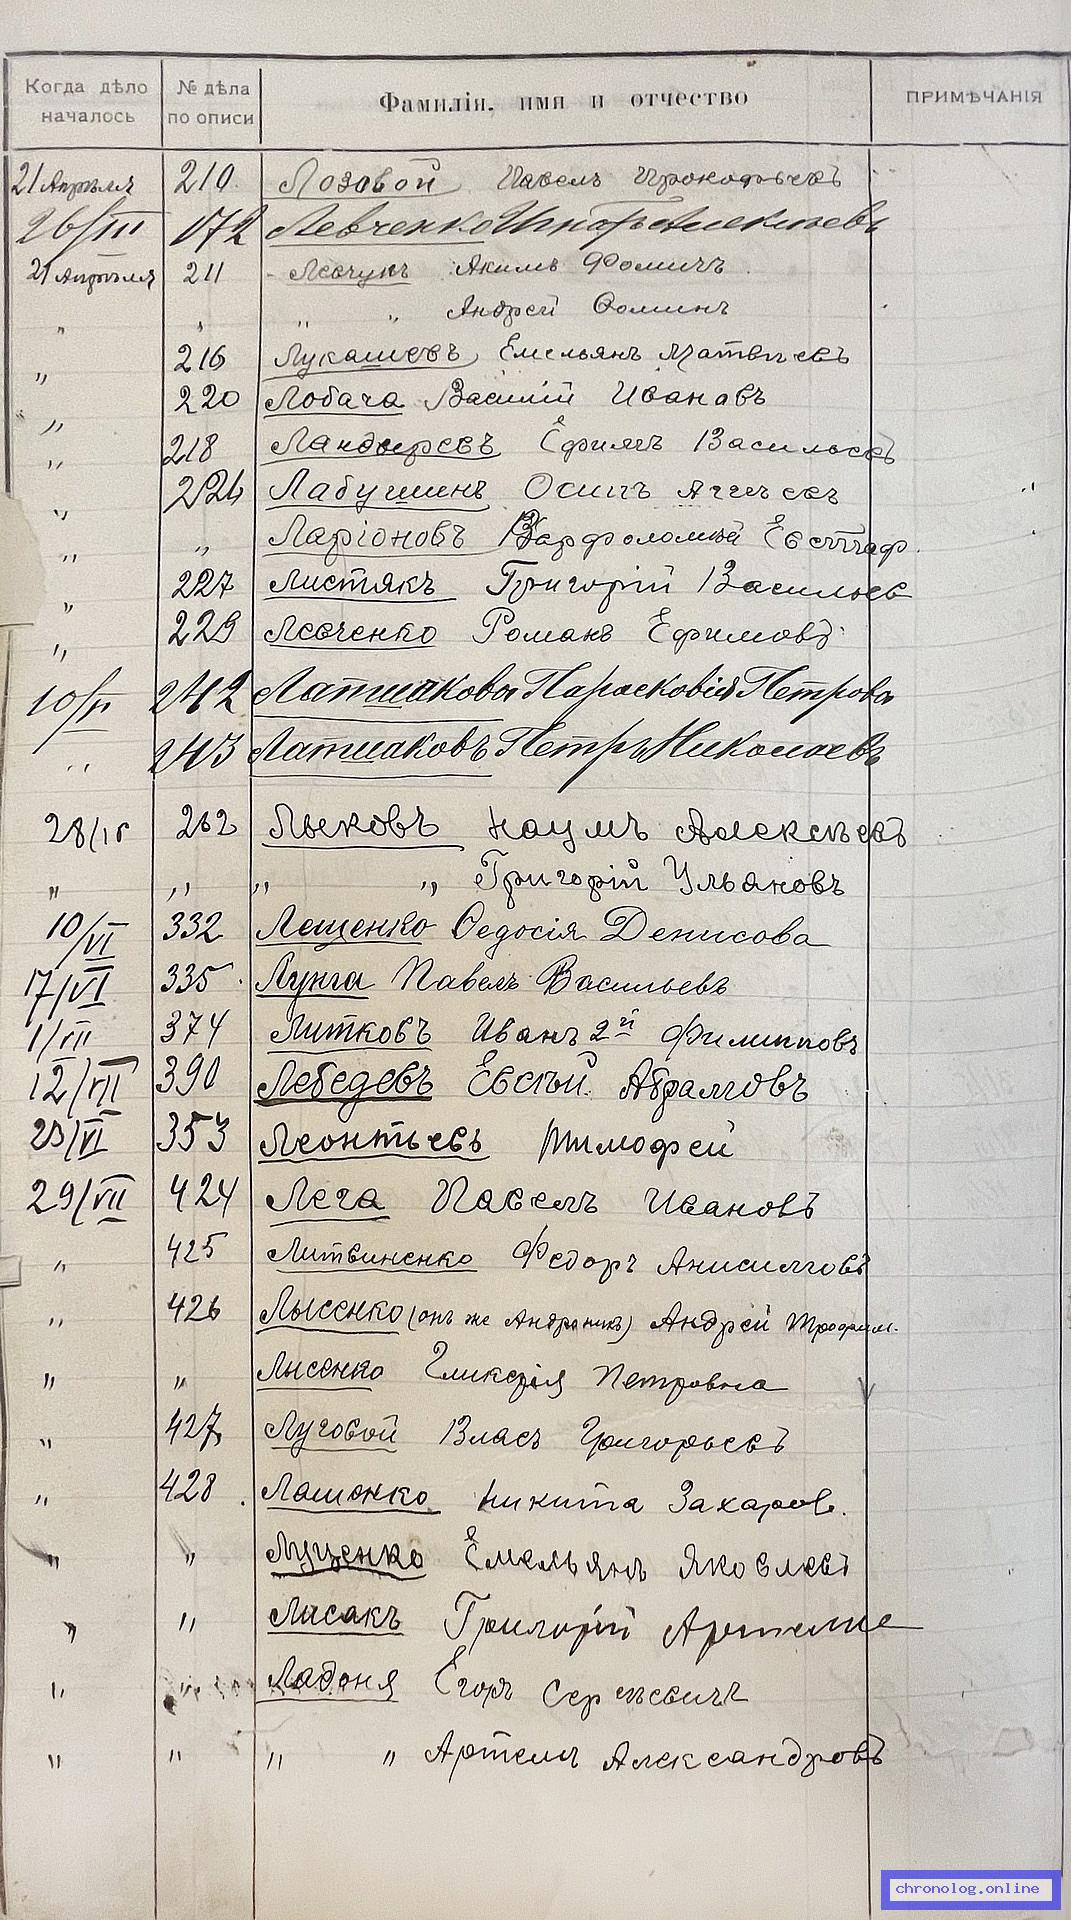 Когда дѣло началось № дѣла по описи Фамилія, имя и отчество ПРИМѢЧАНІЯ
21 Апрѣля 210 Лозовой Павелъ Прокофьевъ
26/III 172 Левченко Алексѣевъ
21 Апрѣля 211 Левчукъ Акимъ Фомичъ
" " " " Андрей Фоминъ
" 216 Лукашевъ Емельянъ Матвѣевъ
" 220 Лобача Василій Ивановъ
" 218 Ландыревъ Ефимъ Васильевъ
" 224 Лабушинъ Осипъ
" " Ларіоновъ Варфоломей Евстаф.
" 227 Листякъ Григорій Васильев
" 229 Левченко Романъ Ефимовъ
10/V 242 Латшакова Парасковія Петрова
" 243 Латшаковъ Петръ Николаевъ
28/IV 262 Лыковъ Наумъ Алексѣевъ
" " " " Григорій Ульяновъ
10/VI 332 Лещенко Ѳедосія Денисова
17/VI 335 Лунга Павелъ Васильевъ
1/VII 374 Литковъ Иванъ 2й Филипповъ
12/VII 390 Лебедевъ Евсѣй Абрамовъ
23/VI 353 Леонтьевъ Тимофей
29/VII 424 Лега Павелъ Ивановъ
" 425 Литвиненко Федоръ Анисимовъ
" 426 Лысенко (онъ же Андроникъ) Андрей Трофим.
" " Лысенко Гликерія Петровна
" 427 Луговой Власъ Григорьевъ
" 428 Лашенко Никита Захаров.
" " Луценко Емельянъ Яковлевъ
" " Лисакъ Григорій Артемие
" " Ладоня Егоръ Сергѣевичъ
" " " " Артемъ Александровъ
chronolog.online